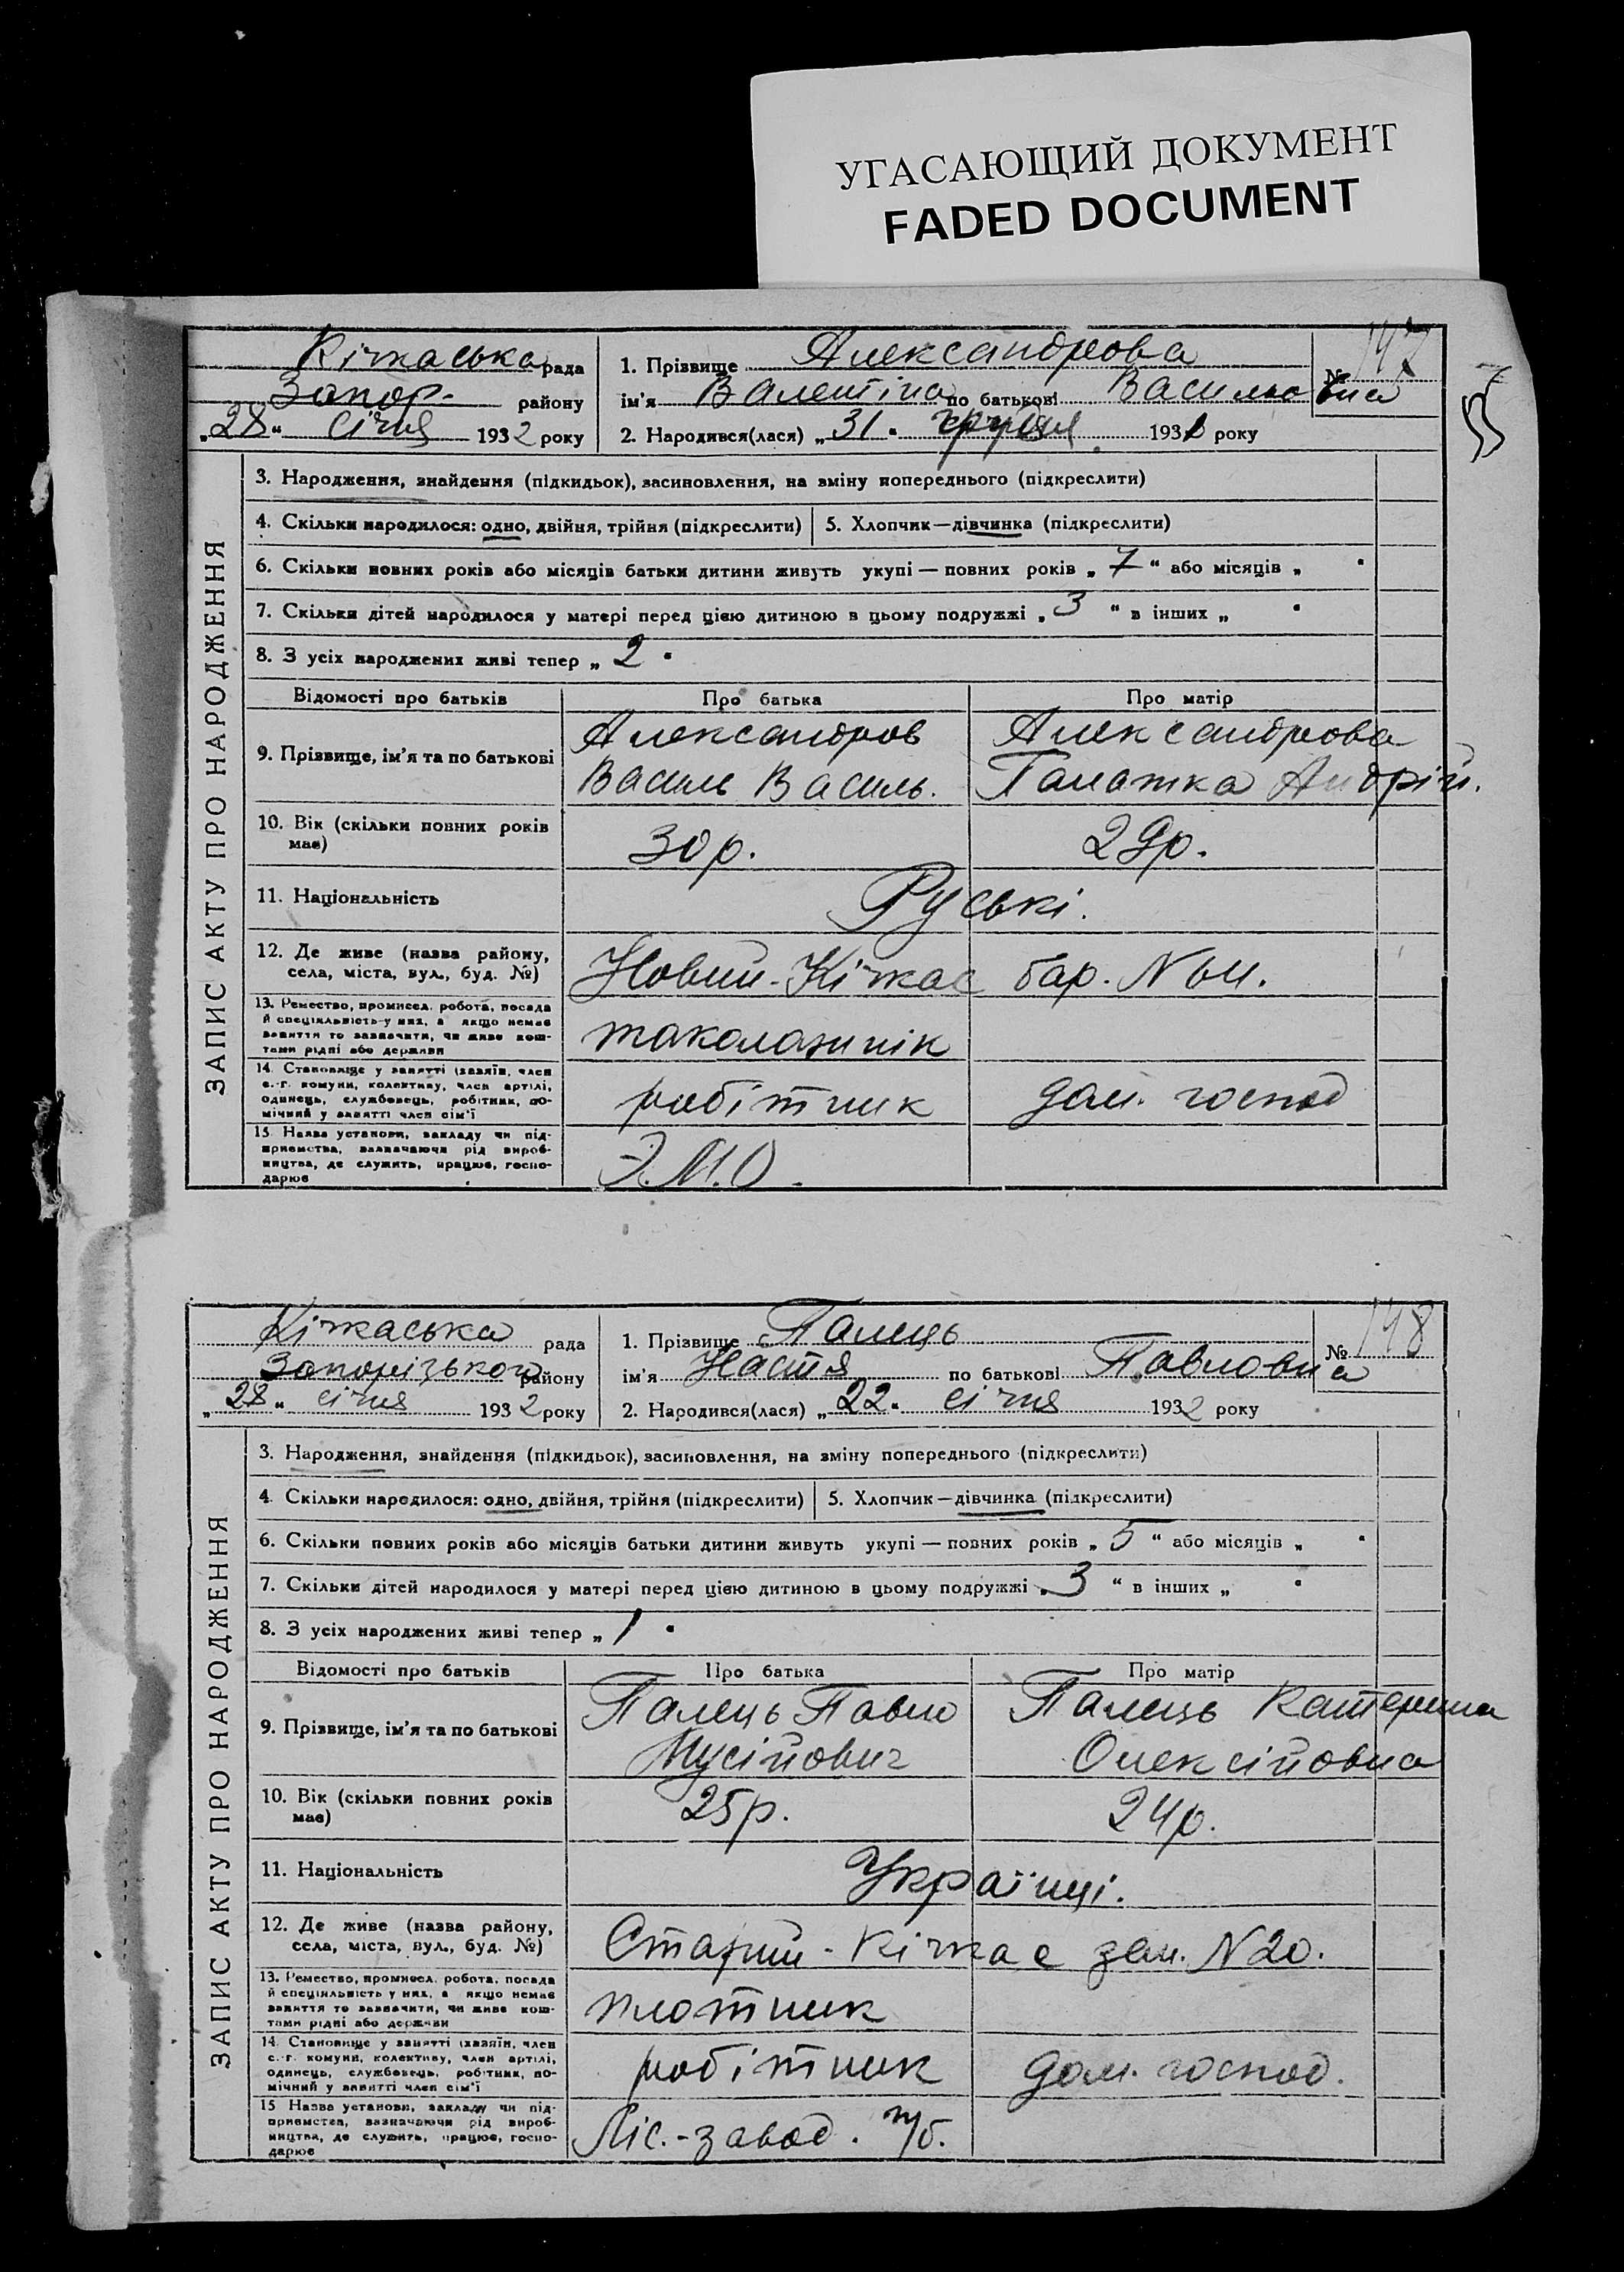 УГАСАЮЩИЙ ДОКУМЕНТ
FADED DOCUMENT
55
Кічкаська рада
Запор. району
„28“ січня 1932 року
1. Прізвище Александрова
ім'я Валентіна по батькові Васильовна
2. Народився(лася) „31“ грудня 1931 року
№ 147
ЗАПИС АКТУ ПРО НАРОДЖЕННЯ
3. Народження, знайдення (підкидьок), засиновлення, на зміну попереднього (підкреслити)
4. Скільки народилося: одно, двійня, трійня (підкреслити) 5. Хлопчик—дівчинка (підкреслити)
6. Скільки повних років або місяців батьки дитини живуть укупі — повних років „7“ або місяців „ “
7. Скільки дітей народилося у матері перед цією дитиною в цьому подружжі „3“ в інших „ “
8. З усіх народжених живі тепер „2“
Відомості про батьків Про батька Про матір
9. Прізвище, ім'я та по батькові
Александров
Василь Василь.
Александрова
Андрій.
10. Вік (скільки повних років
має)
30 р.
29 р.
11. Національність Руські.
12. Де живе (назва району,
села, міста, вул., буд. №)
Новий-Кічкас бар.
13. Ремество, промисел, робота, посада
й спеціяльність у них, а якщо немає
заняття то зазначити, чи живе кош-
тами рідні або держави
14. Становище у занятті (хазяїн, член
с.-г. комуни, колективу, член артілі,
одинець, службовець, робітник, по-
мічний у занятті член сім'ї
робітник
дом. господ
15. Назва установи, закладу чи під-
приємства, зазначаючи рід вироб-
ництва, де служить, працює, госпо-
дарює
Э.М.О.
Кічкаська рада
Запорізького району
„28“ січня 1932 року
1. Прізвище Палець
ім'я Настя по батькові Павловна
2. Народився(лася) „22“ січня 1932 року
№ 148
ЗАПИС АКТУ ПРО НАРОДЖЕННЯ
3. Народження, знайдення (підкидьок), засиновлення, на зміну попереднього (підкреслити)
4. Скільки народилося: одно, двійня, трійня (підкреслити) 5. Хлопчик—дівчинка (підкреслити)
6. Скільки повних років або місяців батьки дитини живуть укупі — повних років „5“ або місяців „ “
7. Скільки дітей народилося у матері перед цією дитиною в цьому подружжі „3“ в інших „ “
8. З усіх народжених живі тепер „1“
Відомості про батьків Про батька Про матір
9. Прізвище, ім'я та по батькові
Палець Павло
Мусійович
Палець Катерина
Олексійовна
10. Вік (скільки повних років
має)
25 р.
24 р.
11. Національність Українці.
12. Де живе (назва району,
села, міста, вул., буд. №)
Старий-Кічкас зем. N 20.
13. Ремество, промисел, робота, посада
й спеціяльність у них, а якщо немає
заняття то зазначити, чи живе кош-
тами рідні або держави
плотник
14. Становище у занятті (хазяїн, член
с.-г. комуни, колективу, член артілі,
одинець, службовець, робітник, по-
мічний у занятті член сім'ї
робітник
дом. господ.
15 Назва установи, закладу чи під-
приємства, зазначаючи рід вироб-
ництва, де служить, працює, госпо-
дарює
Ліс.-завод.